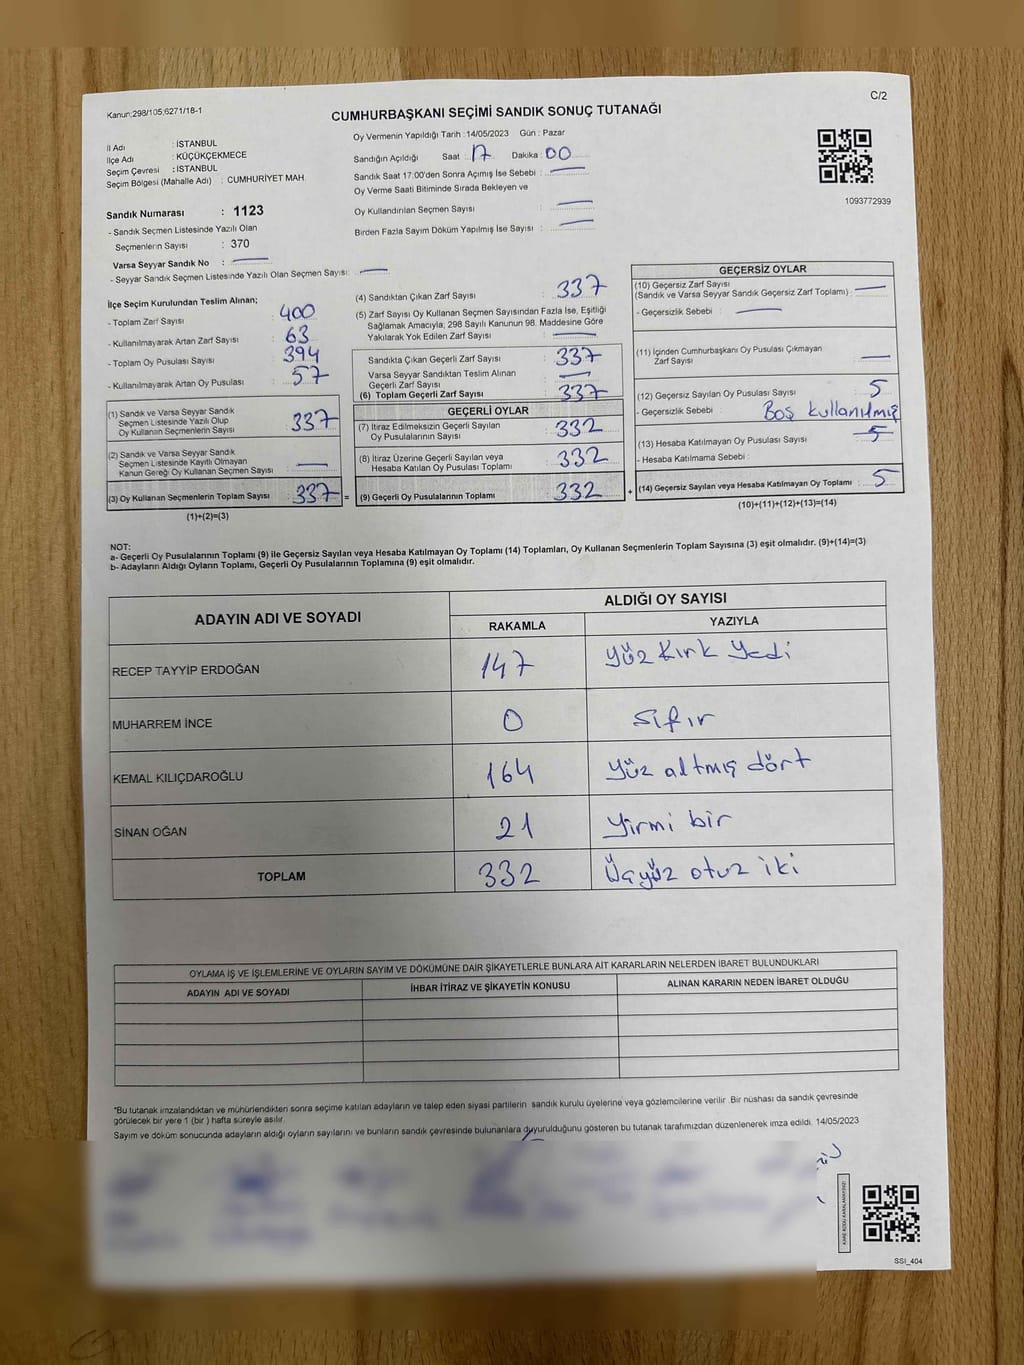 Kanun:298/105;6271/18-1
C/2
CUMHURBAŞKANI SEÇİMİ SANDIK SONUÇ TUTANAĞI
İl Adı : İSTANBUL
İlçe Adı : KÜÇÜKÇEKMECE
Seçim Çevresi : İSTANBUL
Seçim Bölgesi (Mahalle Adı) : CUMHURİYET MAH.
Oy Vermenin Yapıldığı Tarih : 14/05/2023 Gün : Pazar
Sandığın Açıldığı Saat : 17 Dakika : 00
Sandık Saat 17:00'den Sonra Açımış İse Sebebi : —
Oy Verme Saati Bitiminde Sırada Bekleyen ve
Oy Kullandırılan Seçmen Sayısı : —
Birden Fazla Sayım Döküm Yapılmış İse Sayısı : —
1093772939
Sandık Numarası : 1123
- Sandık Seçmen Listesinde Yazılı Olan
Seçmenlerin Sayısı : 370
Varsa Seyyar Sandık No : —
- Seyyar Sandık Seçmen Listesinde Yazılı Olan Seçmen Sayısı: —
İlçe Seçim Kurulundan Teslim Alınan;
- Toplam Zarf Sayısı : 400
- Kullanılmayarak Artan Zarf Sayısı : 63
- Toplam Oy Pusulası Sayısı : 394
- Kullanılmayarak Artan Oy Pusulası : 57
(1) Sandık ve Varsa Seyyar Sandık
Seçmen Listesinde Yazılı Olup
Oy Kullanan Seçmenlerin Sayısı : 337
(2) Sandık ve Varsa Seyyar Sandık
Seçmen Listesinde Kayıtlı Olmayan
Kanun Gereği Oy Kullanan Seçmen Sayısı : —
(3) Oy Kullanan Seçmenlerin Toplam Sayısı : 337 =
(1)+(2)=(3)
(4) Sandıktan Çıkan Zarf Sayısı : 337
(5) Zarf Sayısı Oy Kullanan Seçmen Sayısından Fazla İse, Eşitliği
Sağlamak Amacıyla; 298 Sayılı Kanunun 98. Maddesine Göre
Yakılarak Yok Edilen Zarf Sayısı : —
Sandıkta Çıkan Geçerli Zarf Sayısı : 337
Varsa Seyyar Sandıktan Teslim Alınan
Geçerli Zarf Sayısı : —
(6) Toplam Geçerli Zarf Sayısı : 337
GEÇERLİ OYLAR
(7) İtiraz Edilmeksizin Geçerli Sayılan
Oy Pusulalarının Sayısı : 332
(8) İtiraz Üzerine Geçerli Sayılan veya
Hesaba Katılan Oy Pusulası Toplamı : 332
(9) Geçerli Oy Pusulalarının Toplamı : 332 +
GEÇERSİZ OYLAR
(10) Geçersiz Zarf Sayısı
(Sandık ve Varsa Seyyar Sandık Geçersiz Zarf Toplamı) : —
- Geçersizlik Sebebi : —
(11) İçinden Cumhurbaşkanı Oy Pusulası Çıkmayan
Zarf Sayısı : —
(12) Geçersiz Sayılan Oy Pusulası Sayısı : 5
- Geçersizlik Sebebi : Boş kullanılmış
(13) Hesaba Katılmayan Oy Pusulası Sayısı : 5
- Hesaba Katılmama Sebebi :
(14) Geçersiz Sayılan veya Hesaba Katılmayan Oy Toplamı : 5
(10)+(11)+(12)+(13)=(14)
NOT:
a- Geçerli Oy Pusulalarının Toplamı (9) ile Geçersiz Sayılan veya Hesaba Katılmayan Oy Toplamı (14) Toplamları, Oy Kullanan Seçmenlerin Toplam Sayısına (3) eşit olmalıdır. (9)+(14)=(3)
b- Adayların Aldığı Oyların Toplamı, Geçerli Oy Pusulalarının Toplamına (9) eşit olmalıdır.
ADAYIN ADI VE SOYADI
ALDIĞI OY SAYISI
RAKAMLA YAZIYLA
RECEP TAYYİP ERDOĞAN 147 Yüz Kırk Yedi
MUHARREM İNCE 0 Sıfır
KEMAL KILIÇDAROĞLU 164 Yüz altmış dört
SİNAN OĞAN 21 Yirmi bir
TOPLAM 332 Üçyüz otuz iki
OYLAMA İŞ VE İŞLEMLERİNE VE OYLARIN SAYIM VE DÖKÜMÜNE DAİR ŞİKAYETLERLE BUNLARA AİT KARARLARIN NELERDEN İBARET BULUNDUKLARI
ADAYIN ADI VE SOYADI İHBAR İTİRAZ VE ŞİKAYETİN KONUSU ALINAN KARARIN NEDEN İBARET OLDUĞU
*Bu tutanak imzalandıktan ve mühürlendikten sonra seçime katılan adayların ve talep eden siyasi partilerin sandık kurulu üyelerine veya gözlemcilerine verilir .Bir nüshası da sandık çevresinde
görülecek bir yere 1 (bir ) hafta süreyle asılır.
Sayım ve döküm sonucunda adayların aldığı oyların sayılarını ve bunların sandık çevresinde bulunanlara duyurulduğunu gösteren bu tutanak tarafımızdan düzenlenerek imza edildi. 14/05/2023
KARE KODU KARALAMAYINIZ!
SSI_404